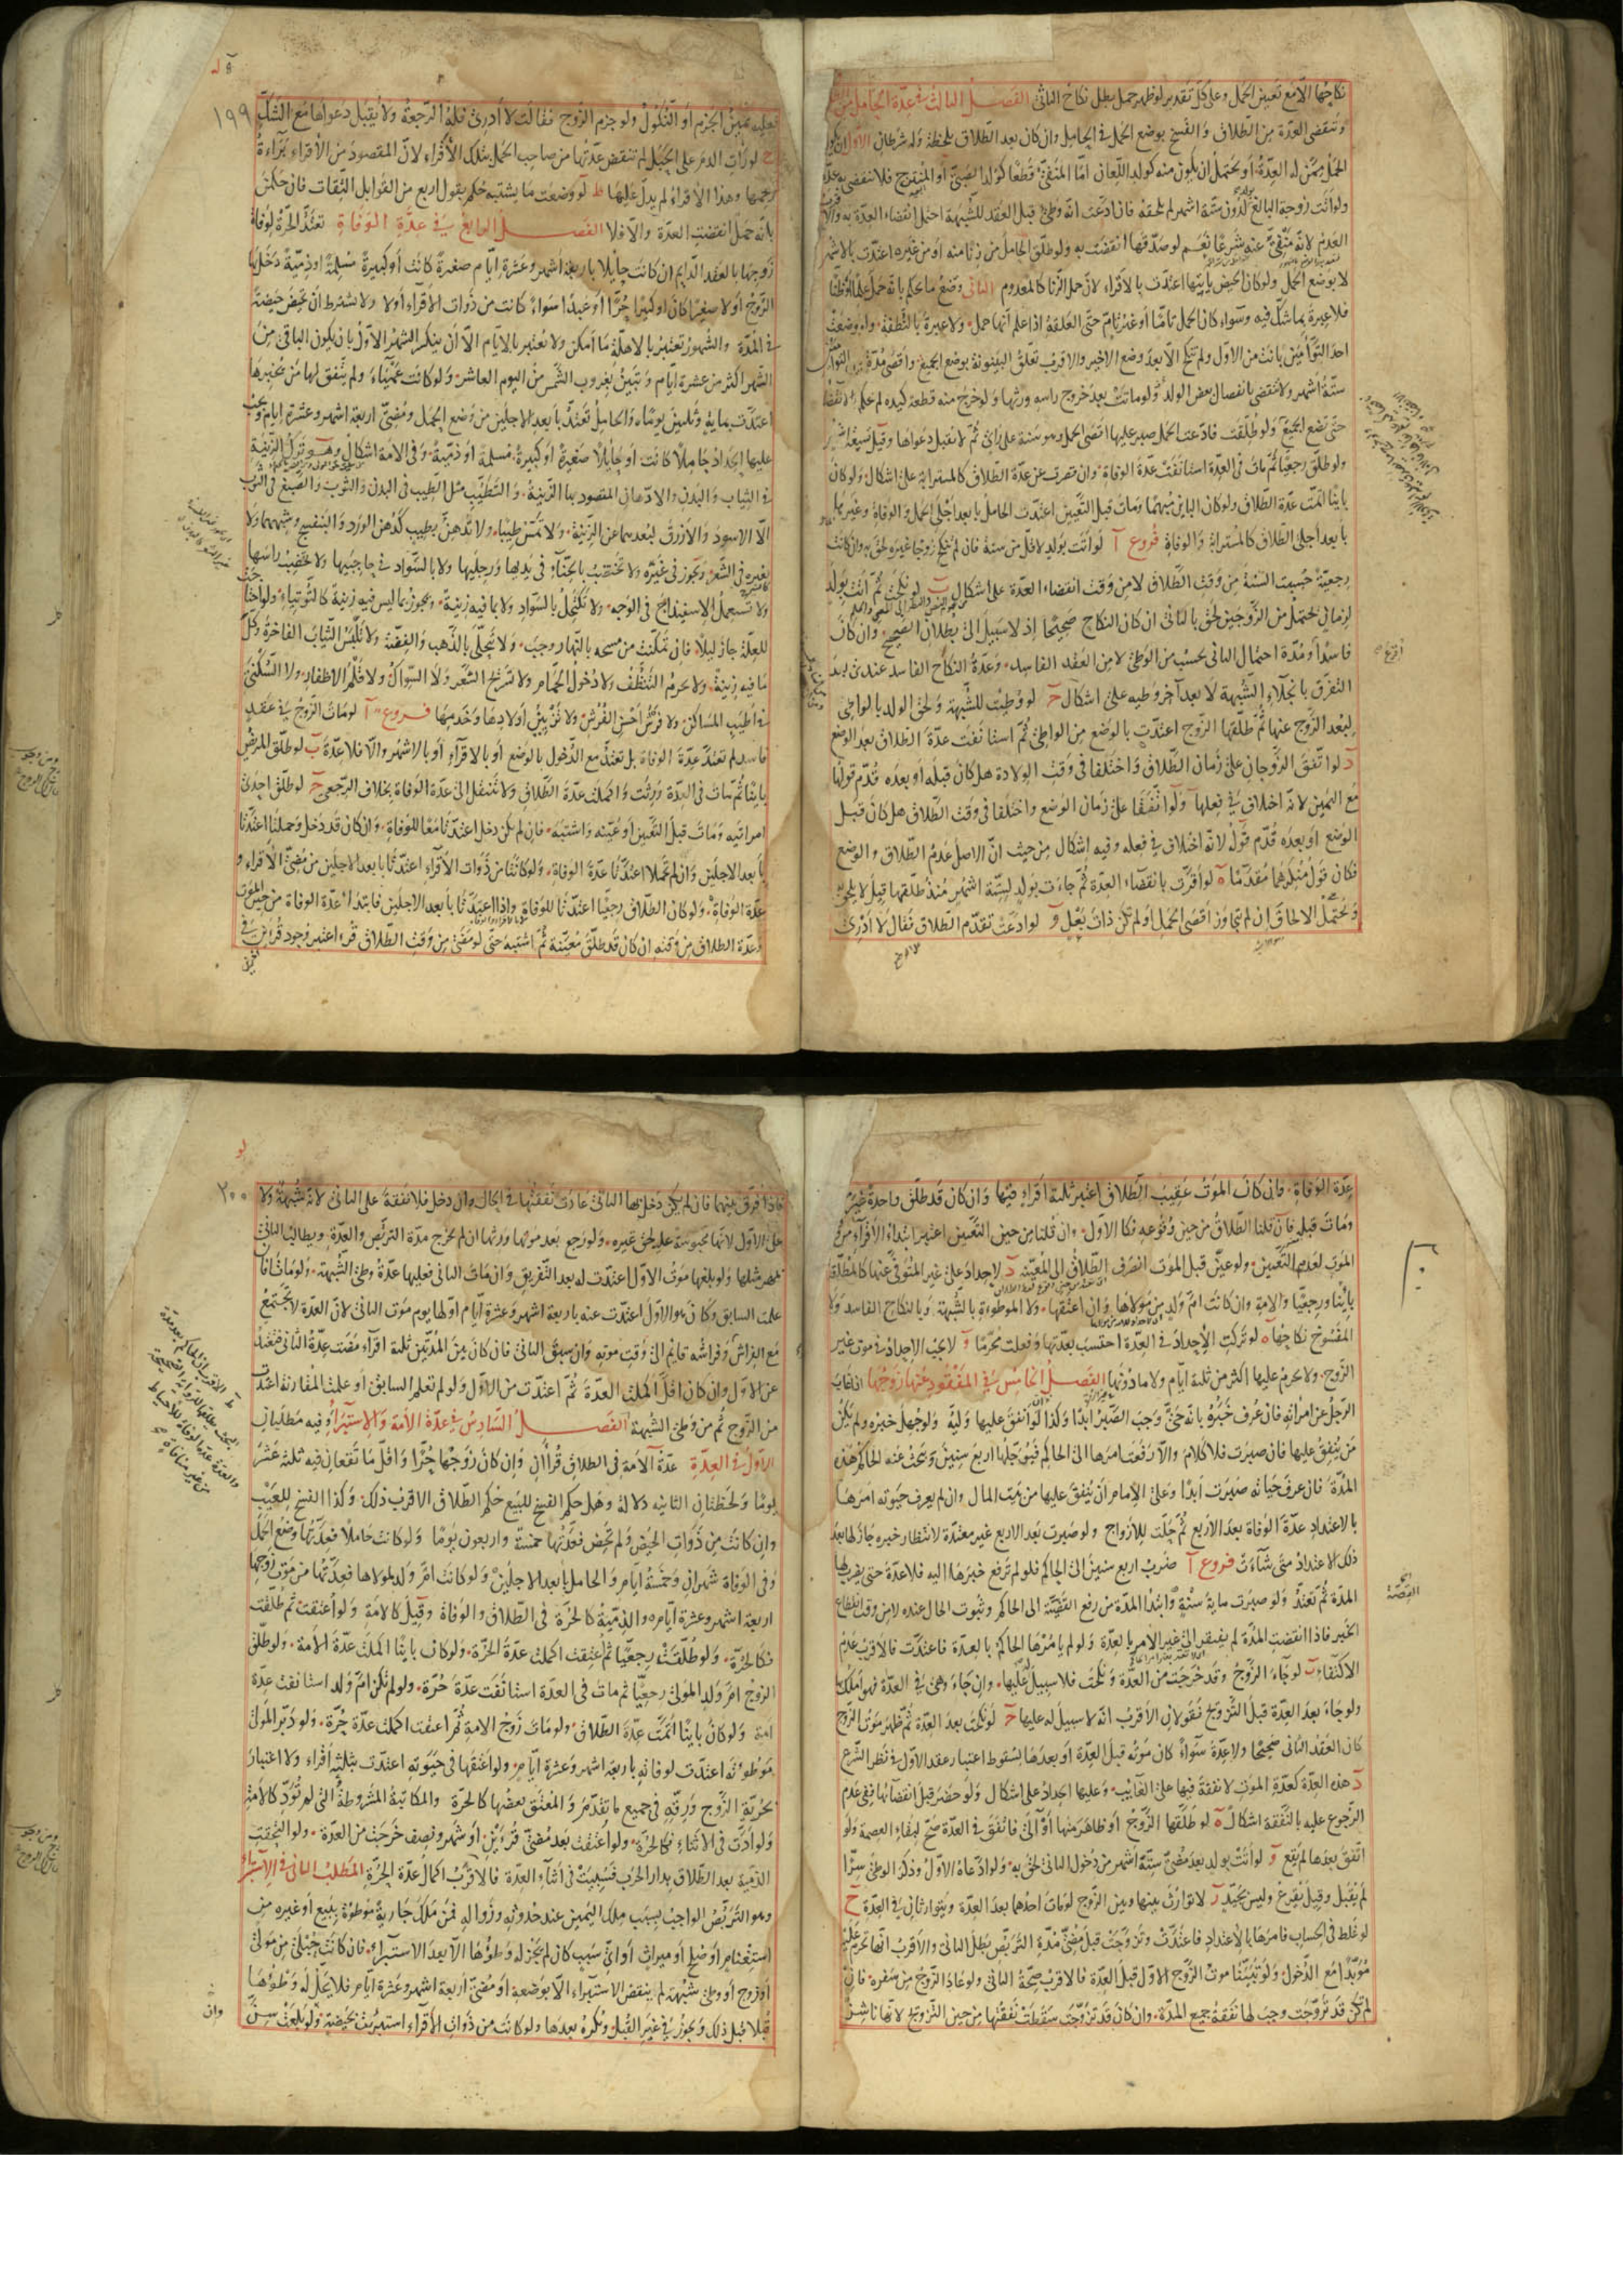 نكاحها الا مع تعيين الحمل وعلى كل تقدير لو ظهر حمل بطل نكاح الثاني الفصل الثالث في عدة الحامل من الطلاق
وتنقضي العدة من الطلاق والفسخ بوضع الحمل في الحامل وان كان بعد الطلاق بلحظة وله شرطان الاول ان يكون
الحمل ممن له العدة او يحتمل ان يكون منه كولد اللعان اما المنفي قطعا كولد الصبي او فلا تنقضي به عدته
ولو اتت زوجة البالغ لدون ستة اشهر لم يلحقه فان ادعت انه وطئ قبل العقد للشبهة احتمل انقضاء العدة به والاقرب
العدم لانه منفي عنه شرعا نعم لو صدقها انقضت به ولو طلق الحامل من زنا منه او من غيره اعتدت بالاشهر
لا بوضع الحمل ولو كان الحيض ياتيها اعتدت بالاقراء لان حمل الزنا كالمعدوم الثاني وضع ما يحكم بانه حمل علما او ظنا
فلا عبرة بما شك فيه وسواء كان الحمل تاما او غير تام حتى العلقة اذا علم انها حمل ولا عبرة بالنطفة ولو وضعت
احد التوامين بانت من الاول ولم تنكح الا بعد وضع الاخير والاقرب تعلق البينونة بوضع الجميع واقصى مدة بين التوامين
ستة اشهر ولا تنقضي بانفصال بعض الولد ولو ماتت بعد خروج راسه ورثها ولو خرج منه قطعة كيده لم علم بالانقضاء
حتى تضع الجميع ولو طلقت فادعت الحمل صبر عليها اقصى الحمل وهو سنة على راي ثم لا تقبل دعواها وقيل تسعة اشهر
ولو طلق رجعيا ثم مات في العدة استانفت عدة الوفاة وان قصرت عن عدة الطلاق كالمسترابة على اشكال ولو كان
باينا اتمت عدة الطلاق ولو كان الباين مبهما ومات قبل التعيين اعتدت الحامل بابعد اجلي الحمل والوفاة وغيرها
بابعد اجلي الطلاق كالمسترابة والوفاة فروع آ لو اتت بولد لاقل من سنة فان لم تنكح زوجا غيره لحق به وان كانت
رجعية حسبت السنة من وقت الطلاق لا من وقت انقضاء العدة على اشكال ب لو نكحت ثم اتت بولد
لزمان يحتمل من الزوجين لحق بالثاني ان كان النكاح صحيحا اذ لا سبيل الى بطلان الصحيح وان كان
فاسدا ومدة احتمال الثاني تحسب من الوطئ لا من العقد الفاسد وعدة النكاح الفاسد عند من
التفرق بانجلاء الشبهة لا بعد آخر وطيه على اشكال ج لو وطئت للشبهة ولحق الولد بالواطئ
لبعد الزوج عنها ثم طلقها الزوج اعتدت بالوضع من الواطئ ثم استانفت عدة الطلاق بعد الوضع
د لو اتفق الزوجان على زمان الطلاق واختلفا في وقت الولادة هل كان قبله او بعده قدم قولها
مع اليمين لانه اختلاف في فعلها ولو اتفقا على زمان الوضع واختلفا في وقت الطلاق هل كان قبل
الوضع او بعده قدم قوله لانه اختلاف في فعله وفيه اشكال من حيث ان الاصل عدم الطلاق والوضع
فكان قول منكرهما مقدما ه لو اقرت بانقضاء العدة ثم جاءت بولد لستة اشهر منذ طلقها قيل لا يلحق به
ويحتمل الالحاق ان لم يتجاوز اقصى الحمل او لم تكن ذات بعل و لو ادعت تقدم الطلاق فقال لا ادري
١٩٩
فعليه يمين الجزم او النكول ولو جزم الزوج فقالت لا ادري فله الرجعة ولا يقبل دعواها مع الشك
لو رات الدم على الحبل لم تنقض عدتها من صاحب الحمل بتلك الاقراء لان المقصود من الاقراء براءة
رحمها وهذا الاقراء لم يدل عليها ط لو وضعت ما يشتبه حكم بقول اربع من القوابل الثقات فان حكمن
بانه حمل انقضت العدة والا فلا الفصل الرابع في عدة الوفاة تعتد الحرة لوفاة
زوجها بالعقد الدايم ان كانت حايلا باربعة اشهر وعشرة ايام صغيرة كانت او كبيرة مسلمة او ذمية دخل بها
الزوج او لا صغيرا كان او كبيرا حرا او عبدا سواء كانت من ذوات الاقراء او لا ولا يشترط ان تحيض حيضة
في المدة والشهور تعتبر بالاهلة ما امكن ولا تعتبر بالايام الا ان ينكسر الشهر الاول بان يكون الباقي من
الشهر اكثر من عشرة ايام وتبين بغروب الشمس من اليوم العاشر ولو كانت عمياء ولم يتفق لها من يخبرها
اعتدت بماية وثلثين يوما والحامل تعتد بابعد الاجلين من وضع الحمل ومضي اربعة اشهر وعشرة ايام ويجب
عليها الحداد حاملا كانت او حايلا صغيرة او كبيرة مسلمة او ذمية وفي الامة اشكال وهو ترك الزينة
في الثياب والبدن والادهان المقصود بها الزينة والتطيب مثل الطيب في البدن والثوب والصبغ في الثوب
الا الاسود والازرق لبعدهما عن الزينة ولا تمس طيبا ولا تدهن بطيب كدهن الورد والبنفسج وشبههما ولا
بغيره في الشعر ويجوز في غيره ولا تختضب بالحناء في يديها ورجليها ولا بالسواد في حاجبيها ولا تخضب راسها
ولا تستعمل الاسفيداج في الوجه ولا تكتحل بالسواد ولا بما فيه زينة ويجوز بما ليس فيه زينة كالتوتياء ولو احتاجت
للعلة جاز ليلا فان تمكنت من مسحه بالنهار وجب ولا تتحلى بالذهب والفضة ولا تلبس الثياب الفاخرة وكل
ما فيه زينة ولا يحرم التنظف ولا دخول الحمام ولا تسريح الشعر ولا السواك ولا قلم الاظفار ولا السكنى
في اطيب المساكن ولا فرش احسن الفرش ولا تزيين اولادها وخدمها فروع آ لو مات الزوج في عقد
فاسد لم تعتد عدة الوفاة بل تعتد مع الدخول بالوضع او بالاقراء او بالاشهر والا فلا عدة ب لو طلق المريض
باينا ثم مات في العدة ورثت واكملت عدة الطلاق ولا تنتقل الى عدة الوفاة بخلاف الرجعي ج لو طلق احدى
امراتيه ومات قبل التعيين او عينه واشتبه فان لم يكن دخل اعتدتا معا للوفاة وان كان قد دخل وحملتا اعتدتا
بابعد الاجلين وان لم تحملا اعتدتا عدة الوفاة ولو كانتا من ذوات الاقراء اعتدتا بابعد الاجلين من مضي الاقراء و
عدة الوفاة ولو كان الطلاق رجعيا اعتدتا للوفاة واذا اعتدتا بابعد الاجلين فابتداء عدة الوفاة من حين الموت
وعدة الطلاق من وقته ان كان قد طلق معينة ثم اشتبه حتى لو مضى من وقت الطلاق قرء اعتبر وجود قرأين في
عدة الوفاة فان كان الموت عقيب الطلاق اعتبر ثلثة اقراء فيها وان كان قد طلق واحدة غير معينة
ومات قبله فان قلنا الطلاق من حين وقوعه فكالاول وان قلنا من حين التعيين اعتبر ابتداء الاقراء من حين
الموت لعدم التعيين ولو عين قبل الموت انصرف الطلاق الى المعينة د لا حداد على غير المتوفى عنها كالمطلقة
باينا ورجعيا والامة وان كانت ام ولد من مولاها وان اعتقها ولا الموطوءة بالشبهة وبالنكاح الفاسد ولا
المفسوخ نكاحها ه لو تركت الاحداد في العدة احتسب بعدتها وفعلت محرما و لا يجب الاحداد في موت غير
الزوج ولا يحرم عليها اكثر من ثلثة ايام ولا ما دونها الفصل الخامس في المفقود عنها زوجها اذا غاب
الرجل عن امراته فان عرف خبره بانه حي وجب الصبر ابدا وكذا لو انفق عليها وليه ولو جهل خبره ولم يكن
من ينفق عليها فان صبرت فلا كلام والا رفعت امرها الى الحاكم فيؤجلها اربع سنين ويبحث عنه الحاكم هذه
المدة فان عرف حياته صبرت ابدا وعلى الامام ان ينفق عليها من بيت المال وان لم يعرف حيوته امرها
بالاعتداد عدة الوفاة بعد الاربع ثم حلت للازواج ولو صبرت بعد الاربع غير معتدة لانتظار خبره جاز لها بعد
ذلك الاعتداد متى شاءت فروع آ ضرب اربع سنين الى الحاكم فلو لم ترفع خبرها اليه فلا عدة حتى يضرب لها
المدة ثم تعتد ولو صبرت ماية سنة وابتداء المدة من رفع القضية الى الحاكم وثبوت الحال عنده لا من وقت انقطاع
الخبر فاذا انقضت المدة لم يفتقر الى غير الامر بالعدة ولو لم يامرها الحاكم بالعدة فاعتدت فالاقرب عدم
الاكتفاء ب لو جاء الزوج وقد خرجت من العدة ونكحت فلا سبيل عليها وان جاء وهي في العدة فهو املك
ولو جاء بعد العدة قبل التزويج فقولان الاقرب انه لا سبيل له عليها ج لو نكحت بعد العدة ثم ظهر موت الزوج
كان العقد الثاني صحيحا ولا عدة سواء كان موته قبل العدة او بعدها لسقوط اعتبار عقد الاول في نظر الشرع
د هذه العدة كعدة الموت لا نفقة فيها على الغايب وعليها احداد على اشكال ولو حضر قبل انقضائها ففي عدم
الرجوع عليه بالنفقة اشكال ه لو طلقها الزوج او ظاهر منها او آلى فاتفق في العدة صح لبقاء العصمة ولو
اتفق بعدها لم يقع و لو اتت بولد بعد مضي ستة اشهر من دخول الثاني لحق به ولو ادعاه الاول وذكر الوطئ سرا
لم يقبل وقيل يقرع وليس بجيد ز لا توارث بينها وبين الزوج لو مات احدهما بعد العدة ويتوارثان في العدة ح
لو غلط في الحساب فامرها بالاعتداد فاعتدت وتزوجت قبل مضي مدة التربص بطل الثاني والاقرب انها تحرم عليه
مؤبدا مع الدخول ولو تبينا موت الزوج الاول قبل العدة فالاقرب صحة الثاني ولو عاد الزوج من سفره فان
لم تكن قد تزوجت وجب لها نفقة جميع المدة وان كان قد تزوجت سقطت نفقتها من حين التزويج لانها ناشز
٢٠٠
فاذا فرق بينهما فان لم يكن دخل بها الثاني عادت نفقتها في الحال وان دخل فلا نفقة على الثاني لانه شبهة ولا
على الاول لانها محبوسة عليه لحق غيره ولو رجع بعد موتها ورثها ان لم تخرج مدة التربص والعدة ويطالبها الثاني
بمهر مثلها ولو بلغها موت الاول اعتدت له بعد التفريق وان مات الثاني فعليها عدة وطئ الشبهة ولو ماتا فان
علمت السابق وكان هو الاول اعتدت عنه باربعة اشهر وعشرة ايام اولها يوم موت الثاني لان العدة لا تجتمع
مع الفراش وفراشه قايم الى وقت موته وان سبق الثاني فان كان بين المدتين ثلثة اقراء مضت عدة الثاني فتعتد
عن الاول وان كان اقل اكملت العدة ثم اعتدت من الاول ولو لم تعلم السابق او علمت المقارنة اعتدت
من الزوج ثم من وطئ الشبهة الفصل السادس في عدة الامة والاستبراء وفيه مطلبان
الاول في العدة عدة الامة في الطلاق قرآن وان كان زوجها حرا واقل ما تقعان فيه ثلثة عشر
يوما ولحظتان الثانية دلالة وهل حكم الفسخ للبيع حكم الطلاق الاقرب ذلك وكذا الفسخ للعيب
وان كانت من ذوات الحيض ولم تحض فعدتها خمسة واربعون يوما ولو كانت حاملا فعدتها وضع الحمل
وفي الوفاة شهران وخمسة ايام والحامل بابعد الاجلين ولو كانت ام ولد لمولاها فعدتها من موت زوجها
اربعة اشهر وعشرة ايام والذمية كالحرة في الطلاق والوفاة وقيل كالامة ولو اعتقت ثم طلقت
فكالحرة ولو طلقت رجعيا ثم اعتقت اكملت عدة الحرة ولو كان باينا اكملت عدة الامة ولو طلق
الزوج ام ولد المولى رجعيا ثم مات في العدة استانفت عدة حرة ولو لم تكن ام ولد استانفت عدة
امة ولو كان باينا اتمت عدة الطلاق ولو مات زوج الامة ثم اعتقت اكملت عدة حرة ولو دبر المولى
موطوءته اعتدت لوفاته باربعة اشهر وعشرة ايام ولو اعتقها في حيوته اعتدت بثلثة اقراء ولا اعتبار
بحرية الزوج ورقه في جميع ما تقدم والمعتق بعضها كالحرة والمكاتبة المشروطة التي لم تؤد كالامة
ولو ادت في الاثناء فكالحرة ولو اعتقت بعد مضي قرئين او شهر ونصف خرجت من العدة ولو التحقت
الذمية بعد الطلاق بدار الحرب فسبيت في اثناء العدة فالاقرب اكمال عدة الحرة المطلب الثاني في الاستبراء
وهو التربص الواجب بسبب ملك اليمين عند حدوثه وزواله فمن ملك جارية موطوءة ببيع او غيره من
استغنام او صلح او ميراث او اي سبب كان لم يجز له وطؤها الا بعد الاستبراء فان كانت حبلى من مولى
او زوج او وطئ شبهة لم ينقض الاستبراء الا بوضعه او مضي اربعة اشهر وعشرة ايام فلا يحل له وطؤها
قبلا قبل ذلك ويجوز في غير القبل ويكره بعدها ولو كانت من ذوات الاقراء استبرئت بحيضة ولو بلغت سن
وان